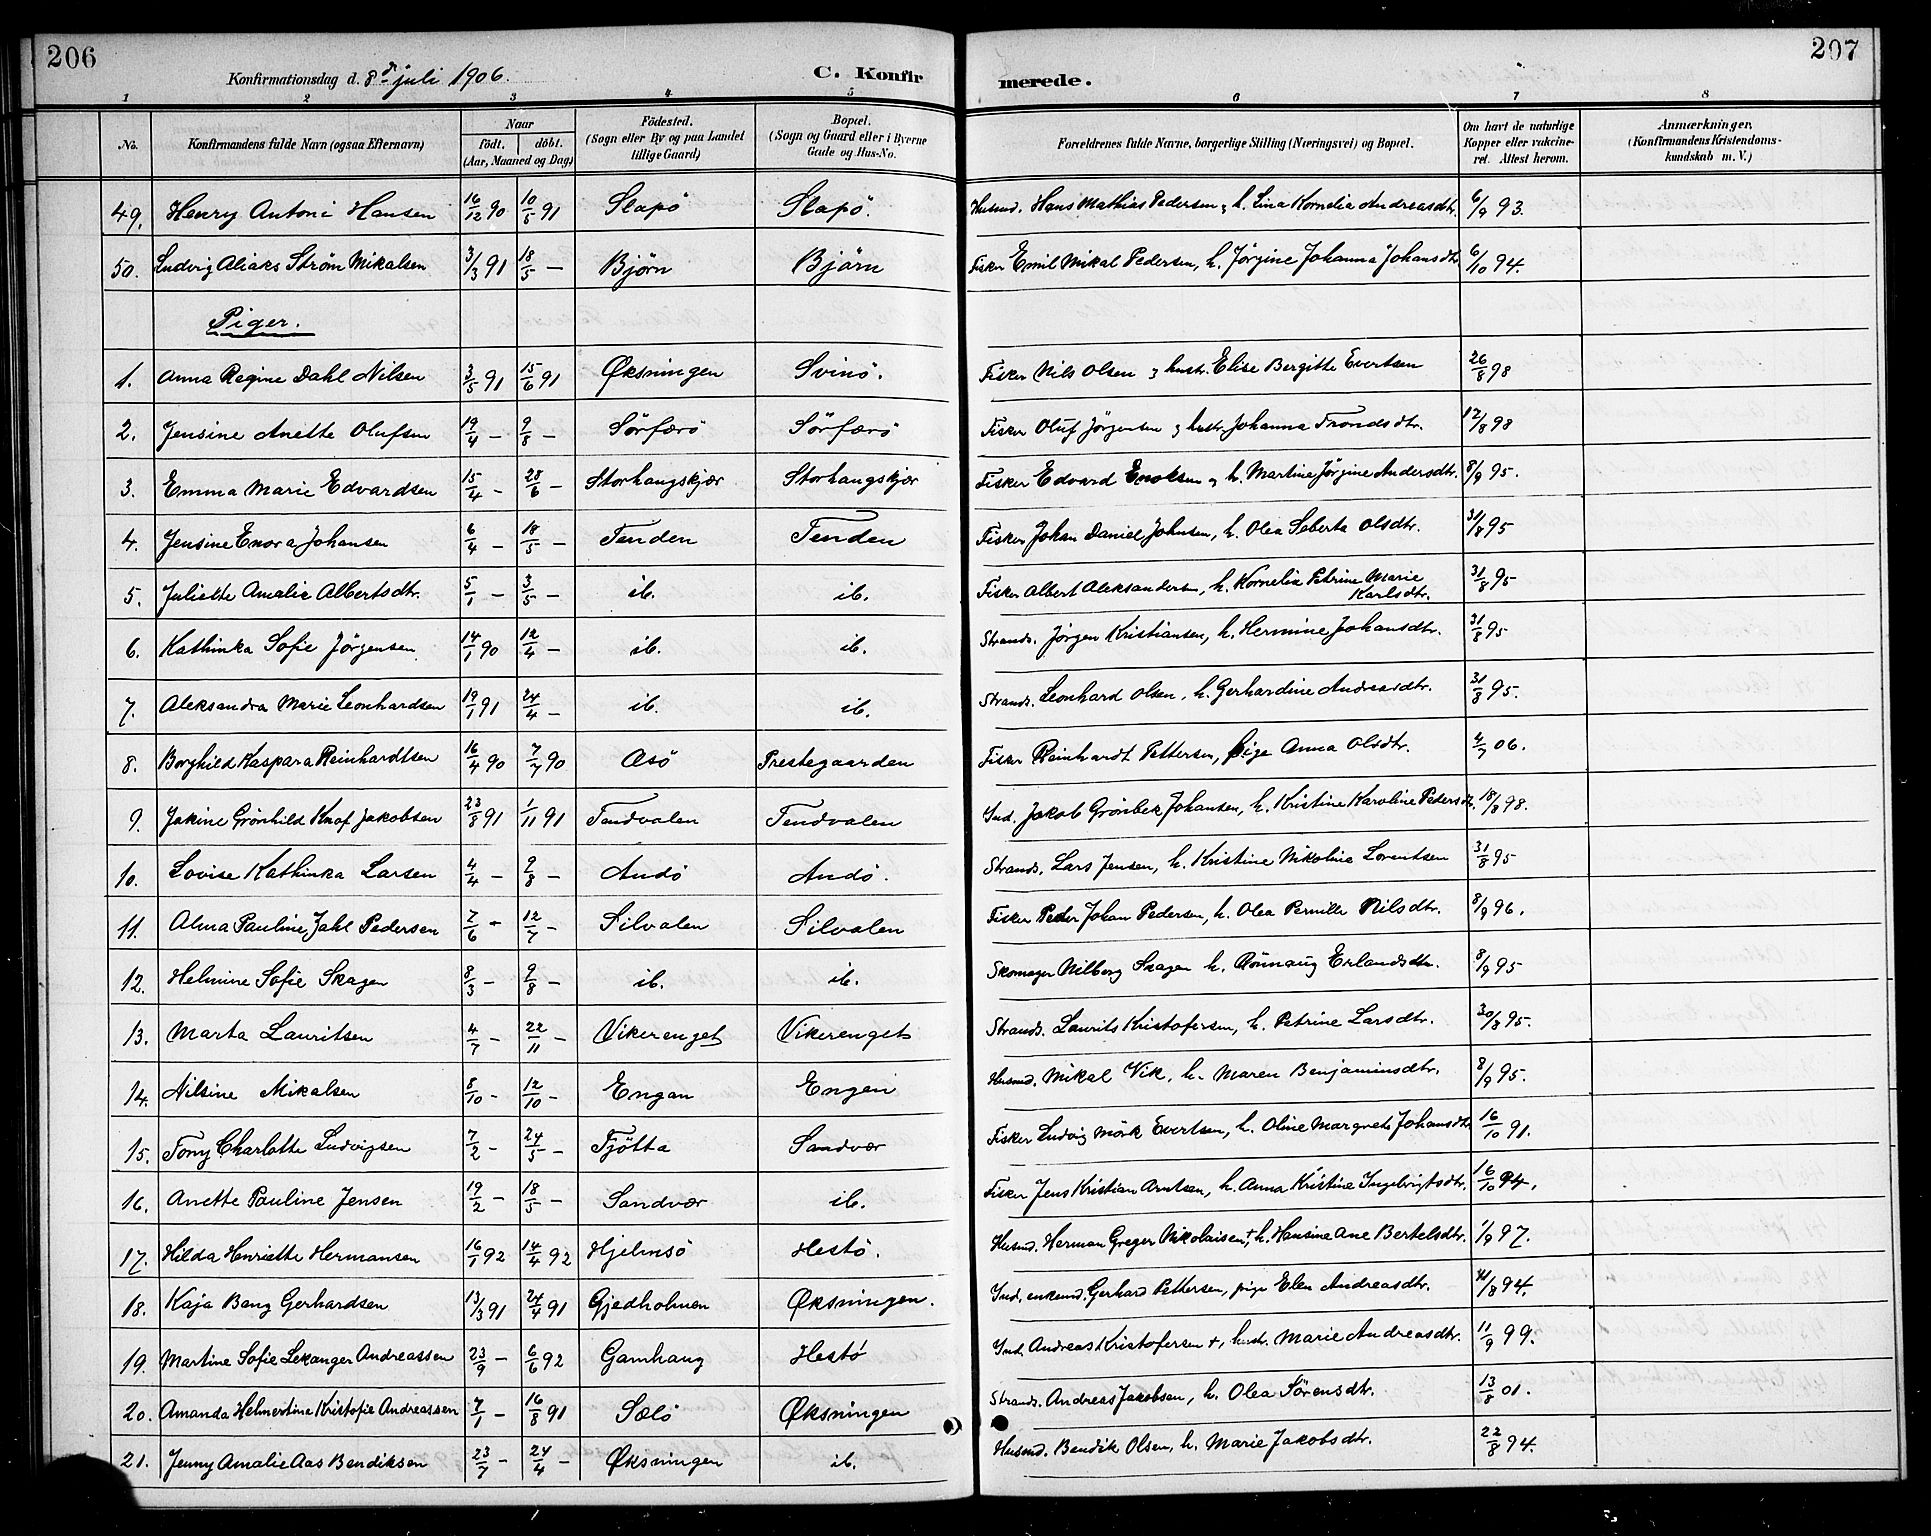 206
207
Konfirmationsdag d. 8de juli 1906.
C. Konfir
merede.
1 2 3 4 5 6 7 8
No. Konfirmandens fulde Navn (ogsaa Efternavn) Naar födt. döbt. (Aar, Maaned og Dag) Födested. (Sogn eller By og paa Landet tillige Gaard) Bopæl. (Sogn og Gaard eller i Byerne Gade og Hus-No. Forældrenes fulde Navne, borgerlige Stilling (Næringsvei) og Bopæl. Om havt de naturlige Kopper eller vakcineret. Attest herom. Anmærkninger, (Konfirmandens Kristendomskundskab m. V.)
49. Henry Antoni Hansen 16/12 90 10/5 91 Slapö Slapö. Husmd. Hans Mathias Pedersen, h. Lina Kornelia Andreasdtr. 6/9 93.
50. Ludvig Aliaks Strøm Mikalsen 3/3 91 18/5 — Bjørn Bjørn Fisker Emil Mikal Pedersen, h. Jørgine Johanna Johansdtr. 6/10 94.
Piger.
1. Anna Regine Dahl Nilsen 3/5 91 15/6 91 Øksningen Svinö. Fisker Nils Olsen & hustr. Elise Bergitte Evertsen 26/8 98
2. Jensine Anette Olufsen 19/4 — 9/8 — Sörfærö Sörfærö Fisker Oluf Jörgensen & hustr. Johanna Trondsdtr. 12/8 98
3. Emma Marie Edvardsen 15/4 — 28/6 — Storhaugskjær Storhaugskjær Fisker Edvard Enoksen & h. Martine Jörgine Andersdtr. 8/9 95.
4. Jensine Enora Johansen 6/4 — 18/5 — Tenden Tenden Fisker Johan Daniel Johnsen, h. Olea Seberta Olsdtr. 31/8 95
5. Juliette Amalie Albertsdtr. 5/1 — 3/5 — ib. ib. Fisker Albert Aleksandersen, h. Kornelia Petrine Marie Karlsdtr. 31/8 95
6. Kathinka Sofie Jörgensen 14/1 90 12/4 — ib. ib. Strands. Jörgen Kristiansen, h. Hermine Johansdtr. 31/8 95
7. Aleksandra Marie Leonhardsen 19/1 91 24/4 — ib. ib. Strands. Leonhard Olsen, h. Gerhardine Andreasdtr. 31/8 95.
8. Borghild Kaspara Reinhardtsen 16/4 90 7/7 90 Asö Prestegaarden Fisker Reinhardt Pettersen, Pige Anna Olsdtr. 4/7 06.
9. Jakine Grönhild Knof Jakobsen 23/8 91 1/11 91 Tendvalen Tendvalen Ind. Jakob Grönbek Johansen, h. Kristine Karoline Pedersdtr. 18/8 98.
10. Lovise Kathinka Larsen 4/4 — 9/8 — Andö Andö. Strands. Lars Jensen, h. Kristine Nikoline Lorentsen 31/8 95
11. Alma Pauline Jahl Pedersen 7/6 — 12/7 — Silvalen Silvalen Fisker Peder Johan Pedersen, h. Olea Pernille Nilsdtr. 8/9 96.
12. Helmine Sofie Skagen 8/3 — 9/8 — ib. ib. Skomager Nilberg Skagen h. Rönnaug Erlandsdtr. 8/9 95
13. Marta Lauritsen 4/7 — 22/11 — Vikerenget Vikerenget Strands. Laurits Kristofersen, h. Petrine Larsdtr. 30/8 95.
14. Nilsine Mikalsen 8/10 — 12/10 — Engan Engen Husmd. Mikal Vik, h. Maren Benjaminsdtr. 8/9 95.
15. Tony Charlotte Ludvigsen 7/2 — 24/5 — Tjötta Sandvær Fisker Ludvig Mörk Evertsen, h. Oline Margrete Johansdtr. 16/10 91.
16. Anette Pauline Jensen 19/2 — 18/5 — Sandvær ib. Fisker Jens Kristian Arntsen, h. Anna Kristine Ingebrigtsdtr. 16/10 94.
17. Hilda Henriette Hermansen 16/1 92 14/4 92 Hjelmsö Hestö. Husmd. Herman Greger Nikolaisen †, h. Hansine Ane Bertelsdtr. 1/9 97.
18. Kaja Bang Gerhardsen 13/3 91 24/4 91 Gjedholmen Øksningen. Ind. enkemd. Gerhard Pettersen, pige Elen Andreasdtr. /8 94.
19. Martine Sofie Lekanger Andreassen 23/9 — 6/6 92 Gamhaug Hestö Ind. Andreas Kristofersen †, hustr. Marie Andreasdtr. 11/9 99.
20. Amanda Helmertine Kristofie Andreassen 7/1 — 16/8 91 Sælö Øksningen Strands. Andreas Jakobsen, h. Olea Sörensdtr. 13/8 01.
21. Jenny Amalie Aas Bendiksen 23/7 — 24/4 — Øksningen ib. Husmd. Bendik Olsen, h. Marie Jakobsdtr. 22/8 94.